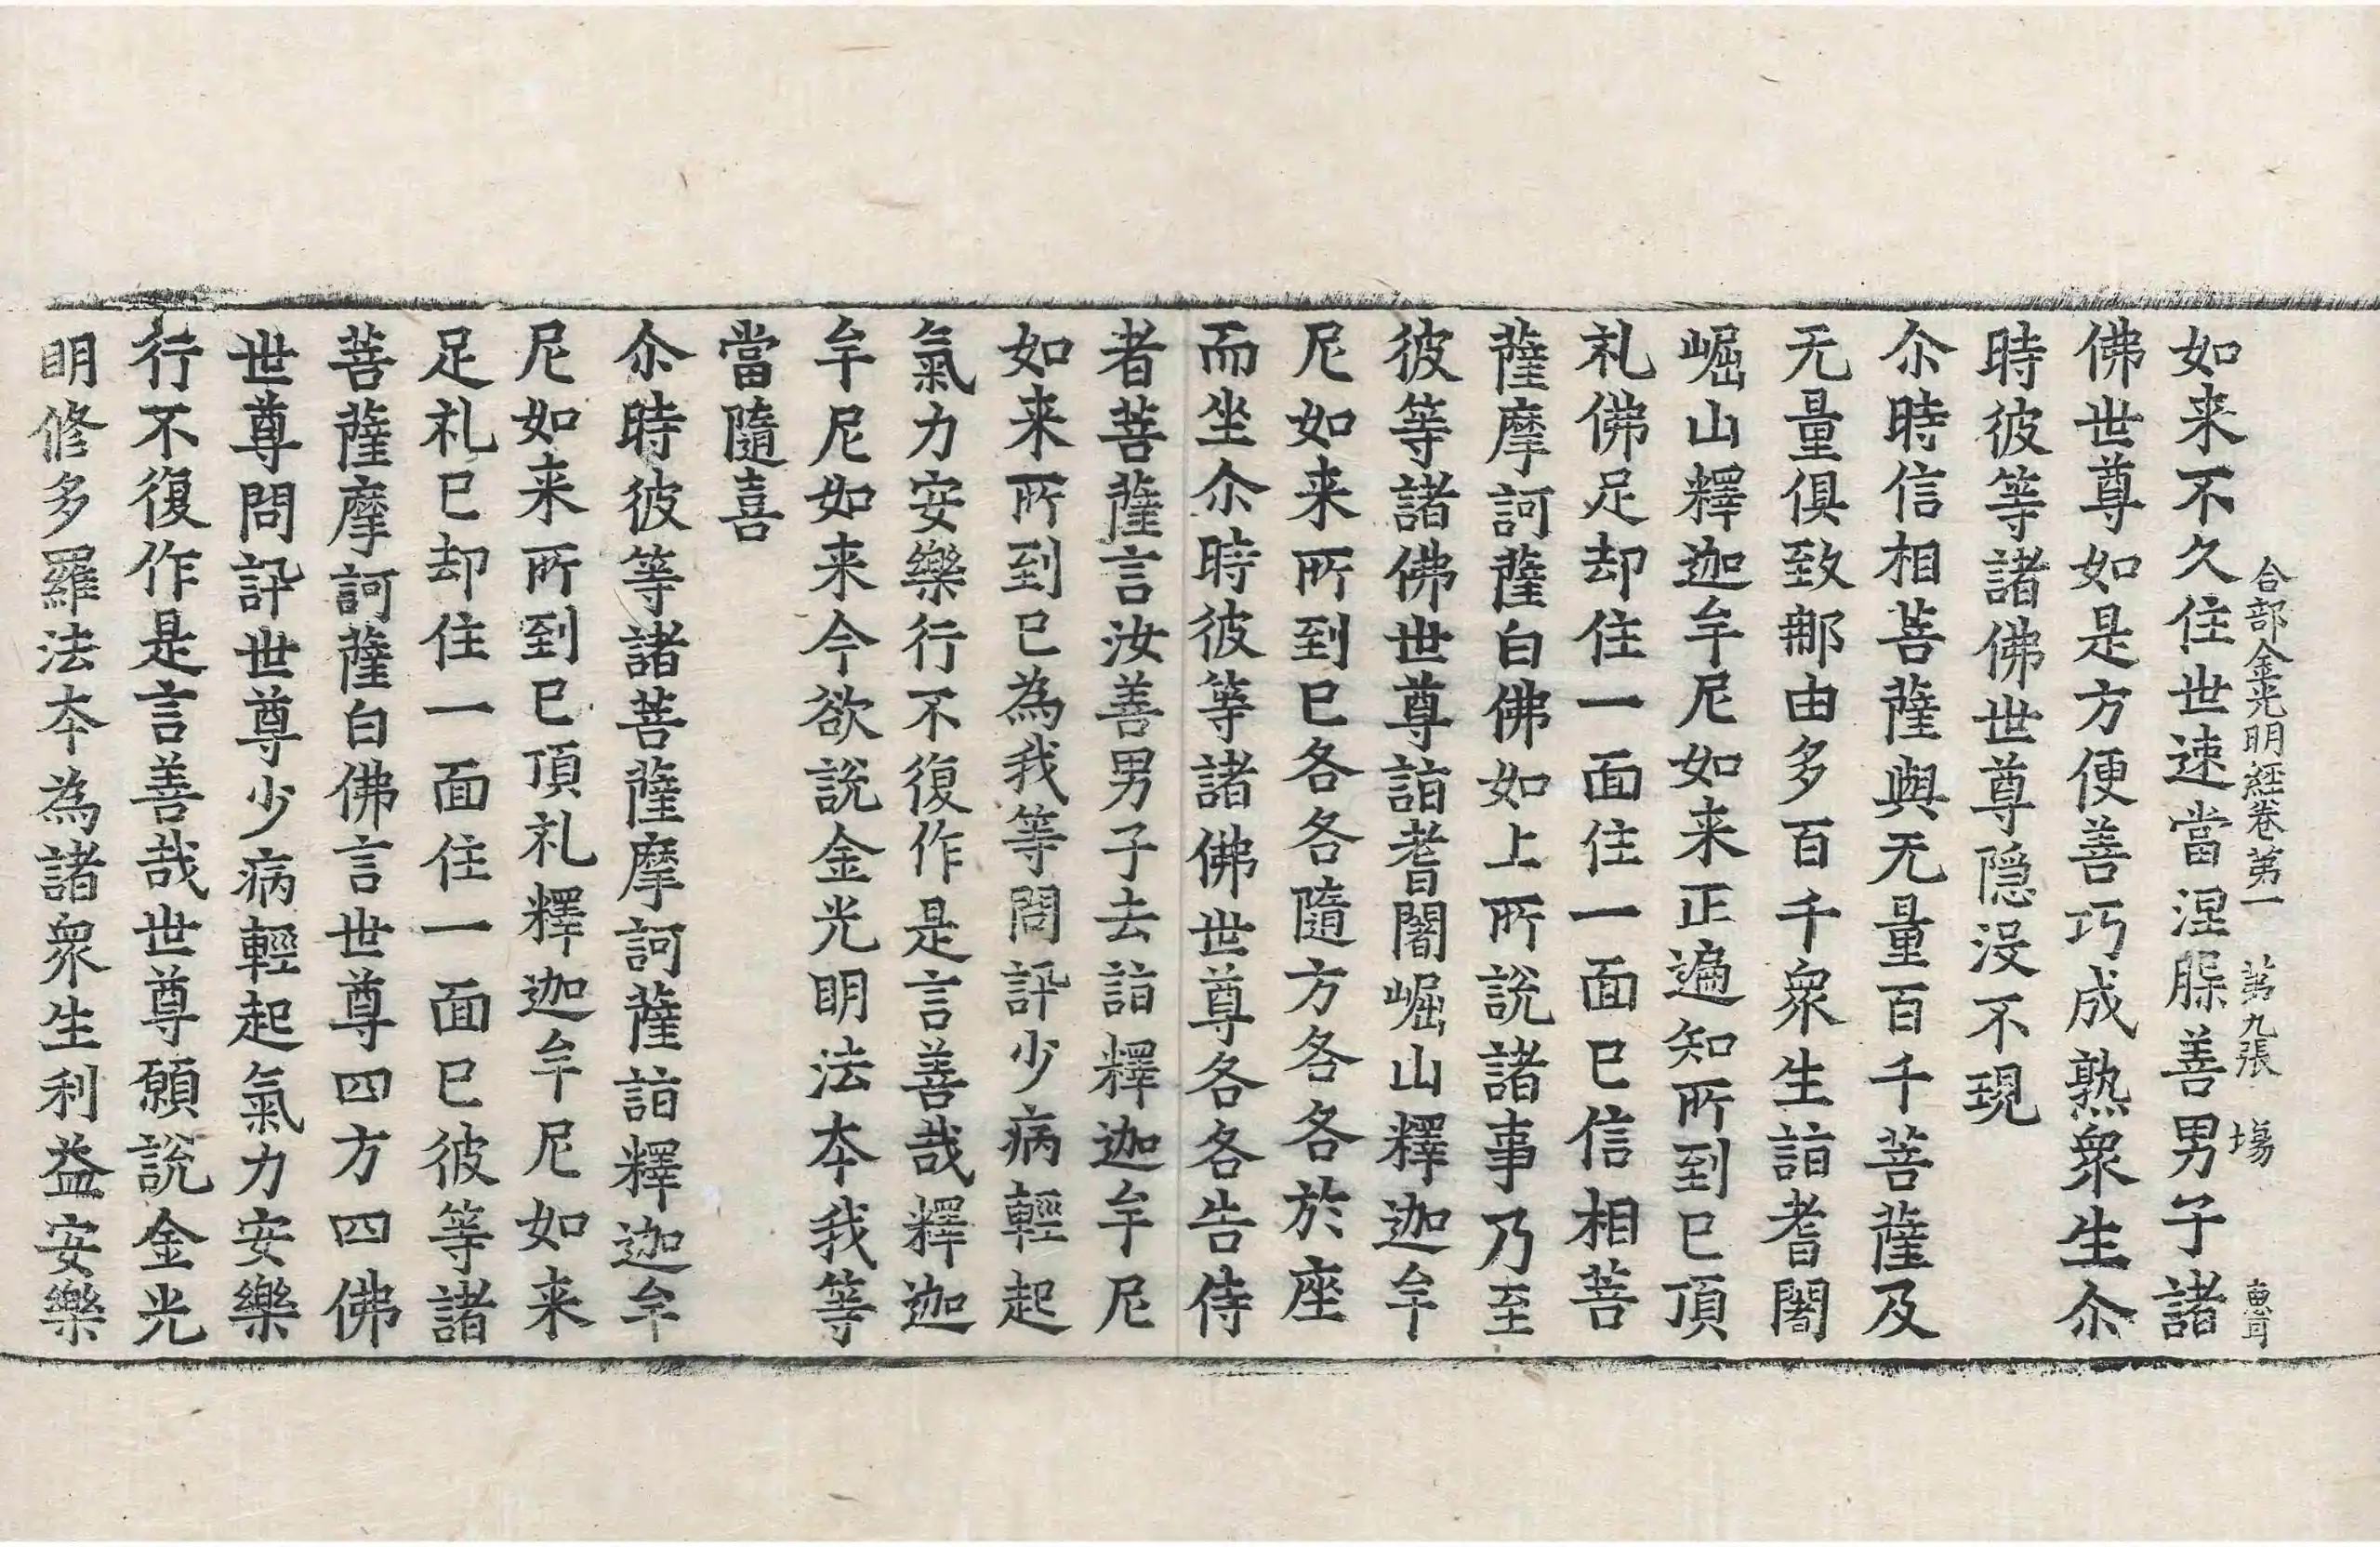 合部金光明經卷第一　第九張　塲　惠耳
如来不久住世速當涅槃善男子諸
佛世尊如是方便善巧成熟衆生尒
時彼等諸佛世尊隱没不現
尒時信相菩薩與无量百千菩薩及
无量俱致那由多百千衆生詣耆闍
崛山釋迦牟尼如来正遍知所到已頂
礼佛足却住一面住一面已信相菩
薩摩訶薩白佛如上所說諸事乃至
彼等諸佛世尊詣耆闍崛山釋迦牟
尼如来所到已各各隨方各各於座
而坐尒時彼等諸佛世尊各各告侍
者菩薩言汝善男子去詣釋迦牟尼
如来所到已為我等問訊少病輕起
氣力安樂行不復作是言善哉釋迦
牟尼如来今欲說金光明法本我等
當隨喜
尒時彼等諸菩薩摩訶薩詣釋迦牟
尼如来所到已頂礼釋迦牟尼如来
足礼已却住一面住一面已彼等諸
菩薩摩訶薩白佛言世尊四方四佛
世尊問訊世尊少病輕起氣力安樂
行不復作是言善哉世尊願說金光
明修多羅法本為諸衆生利益安樂